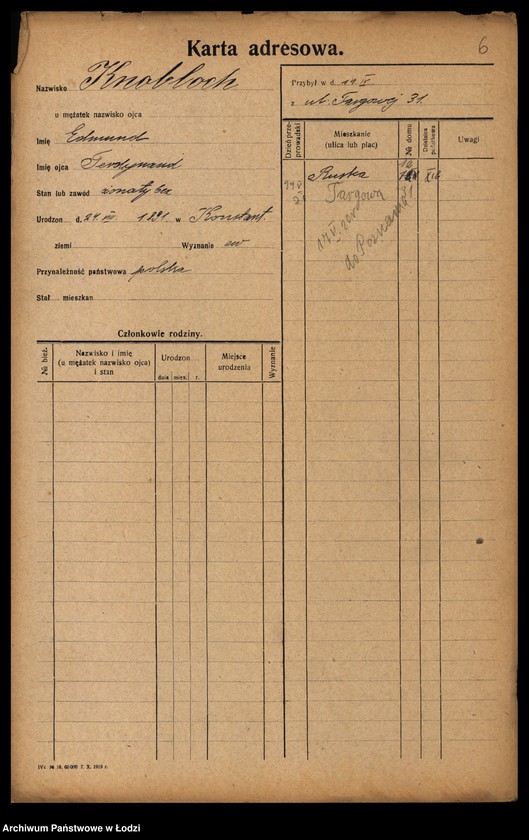 6
Karta adresowa.
Nazwisko Knobloch
u mężatek nazwisko ojca
Imię Edmund
Imię ojca Ferdynand
Stan lub zawód żonaty bez
Urodzon d. 24 III 1891 w Konstant.
ziemi Wyznanie ew
Przynależność państwowa polska
Stał mieszkan
Przybył w d. 19 IV
z ul. Targowej 31.
Dzień przeprowadzki
Mieszkanie (ulica lub plac)
№ domu
Dzielnica policyjna
Uwagi
Ruska XII
Targowa 31
17 V
do Poznania
Członkowie rodziny.
№ bież.
Nazwisko i imię (u mężatek nazwisko ojca) i stan
Urodzon
dnia mies. r.
Miejsce urodzenia
Wyznanie
Archiwum Państwowe w Łodzi